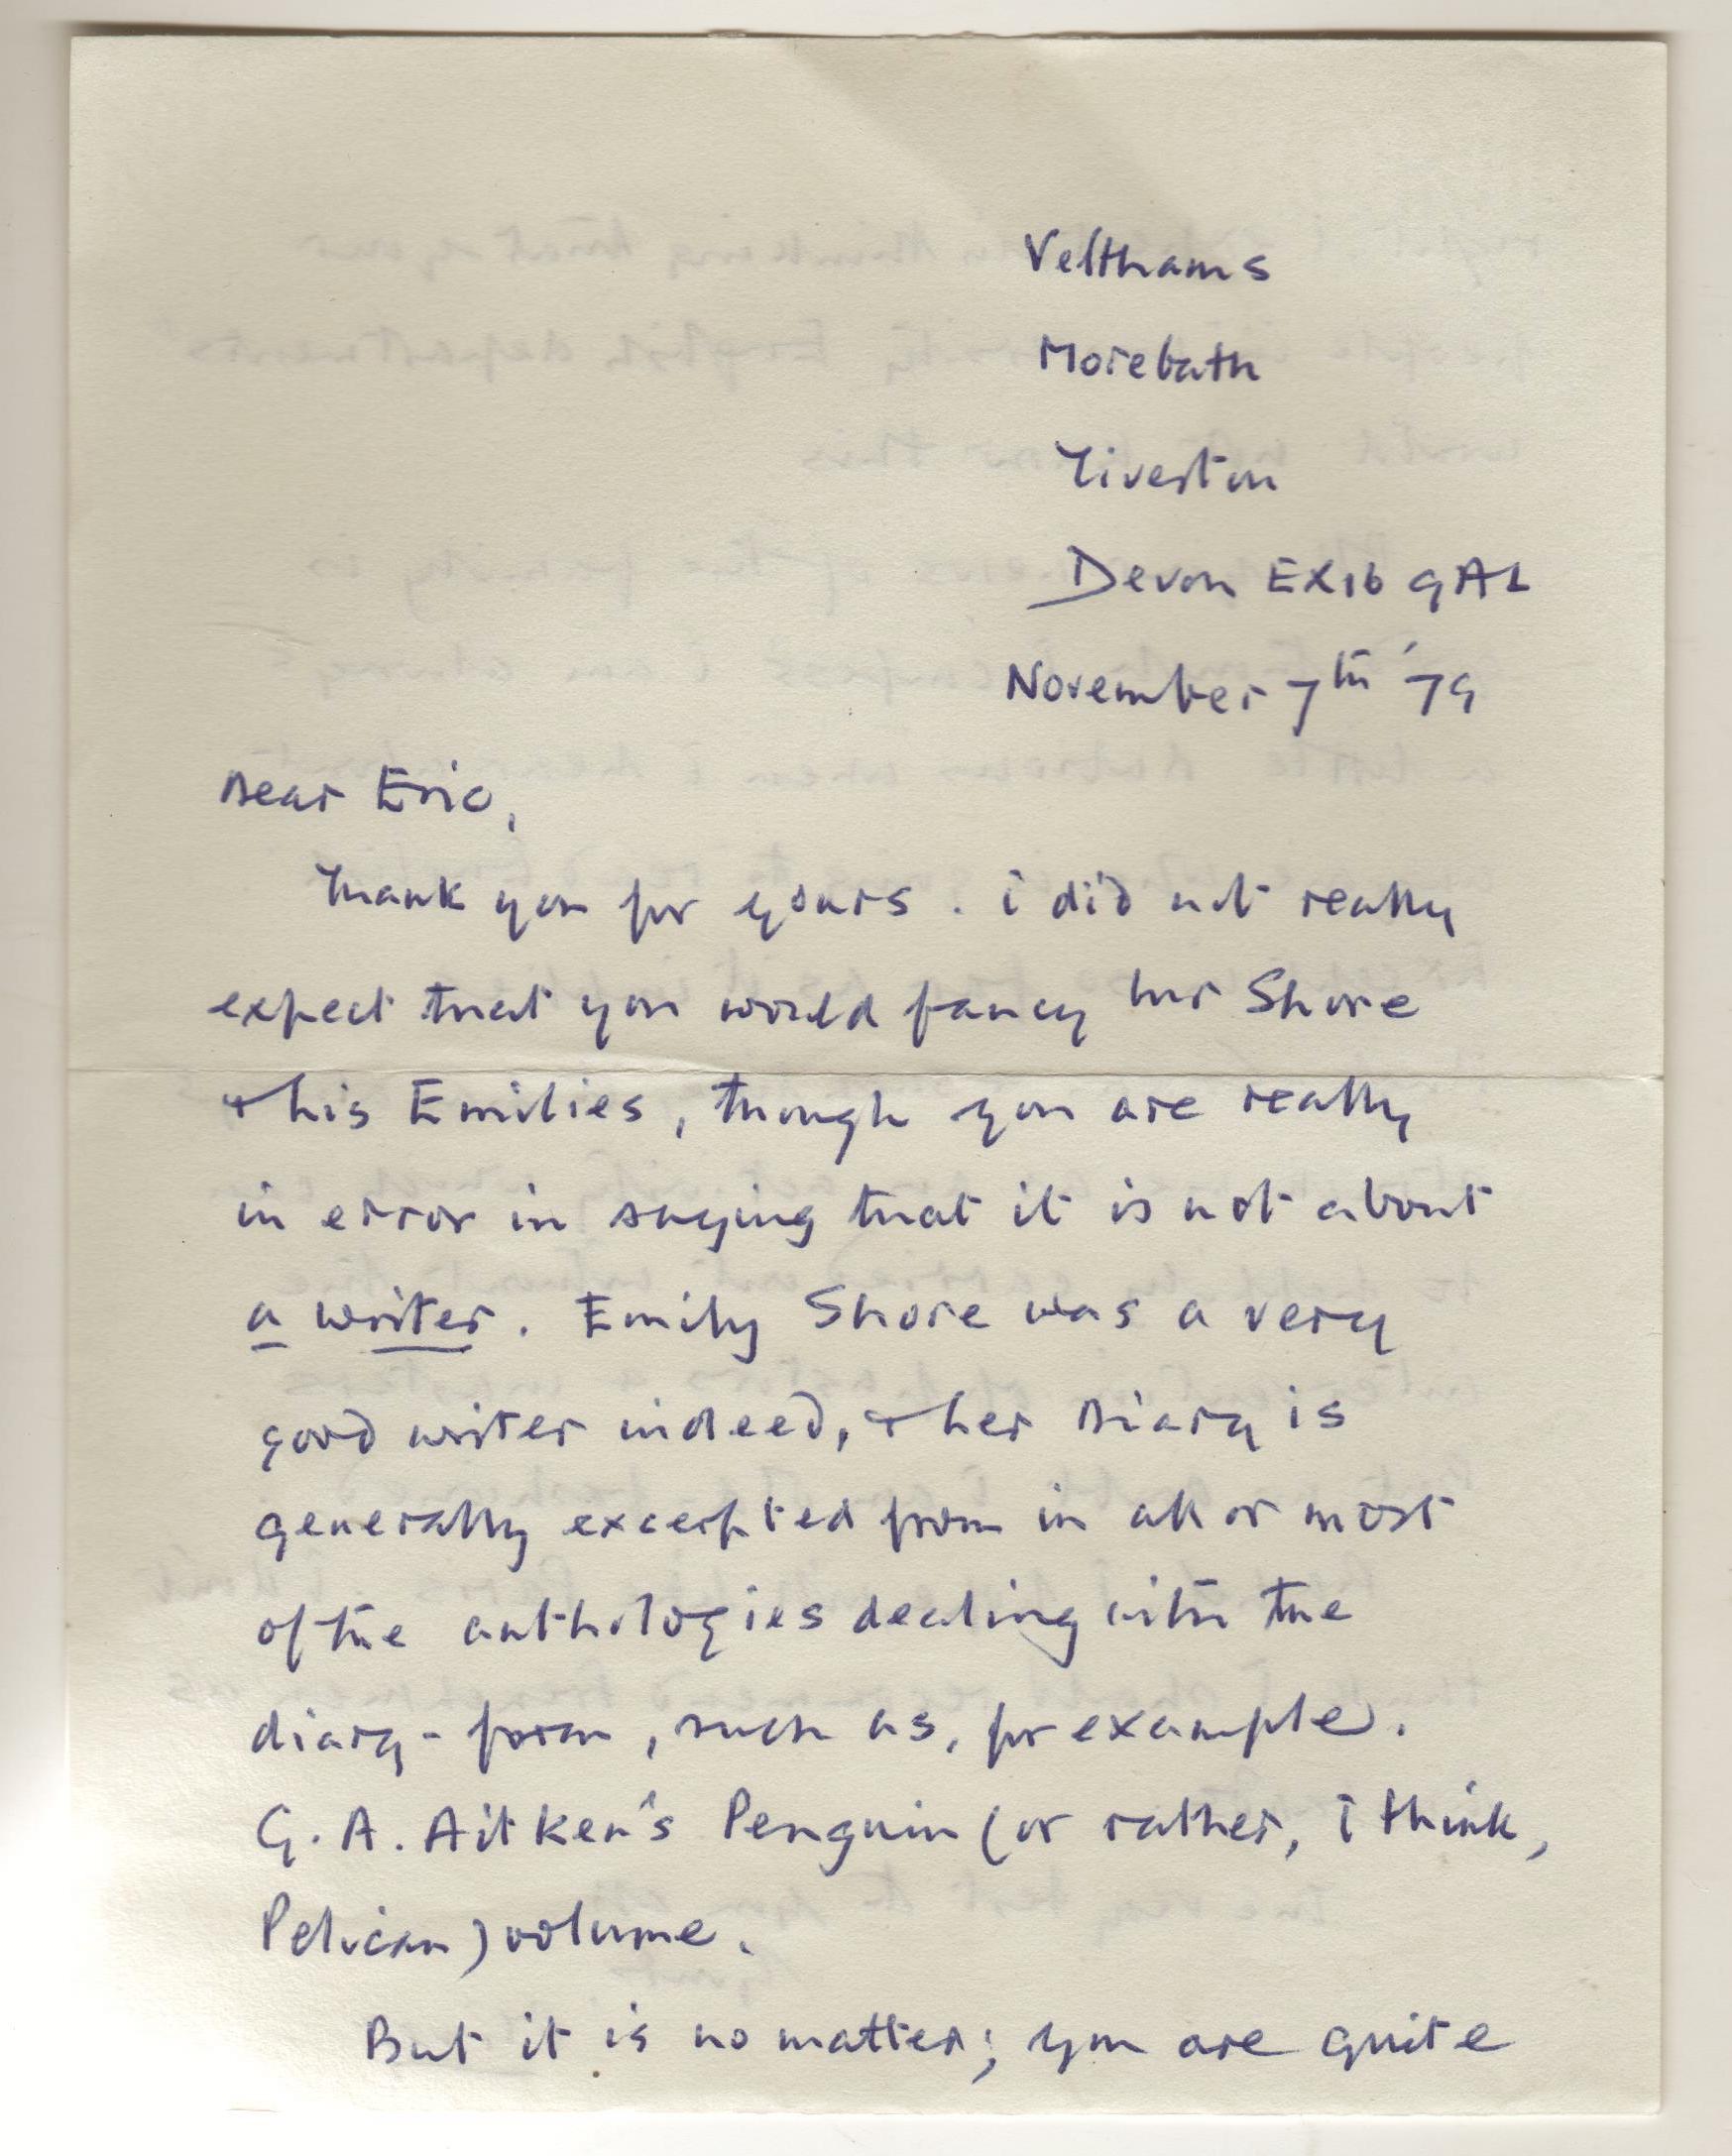 Velthams
Morebath
Tiverton
Devon EX16 9AL
November 7th '79
Dear Eric,
Thank you for yours. i did not really
expect that you would fancy Mr Shore
+ his Emilies, though you are really
in error in saying that it is not about
a writer. Emily Shore was a very
good writer indeed, + her Diary is
generally excerpted from in all or most
of the anthologies dealing with the
diary-form, such as, for example.
G. A. Aitken's Penguin (or rather, i think,
Pelican) volume.
But it is no matter; you are quite